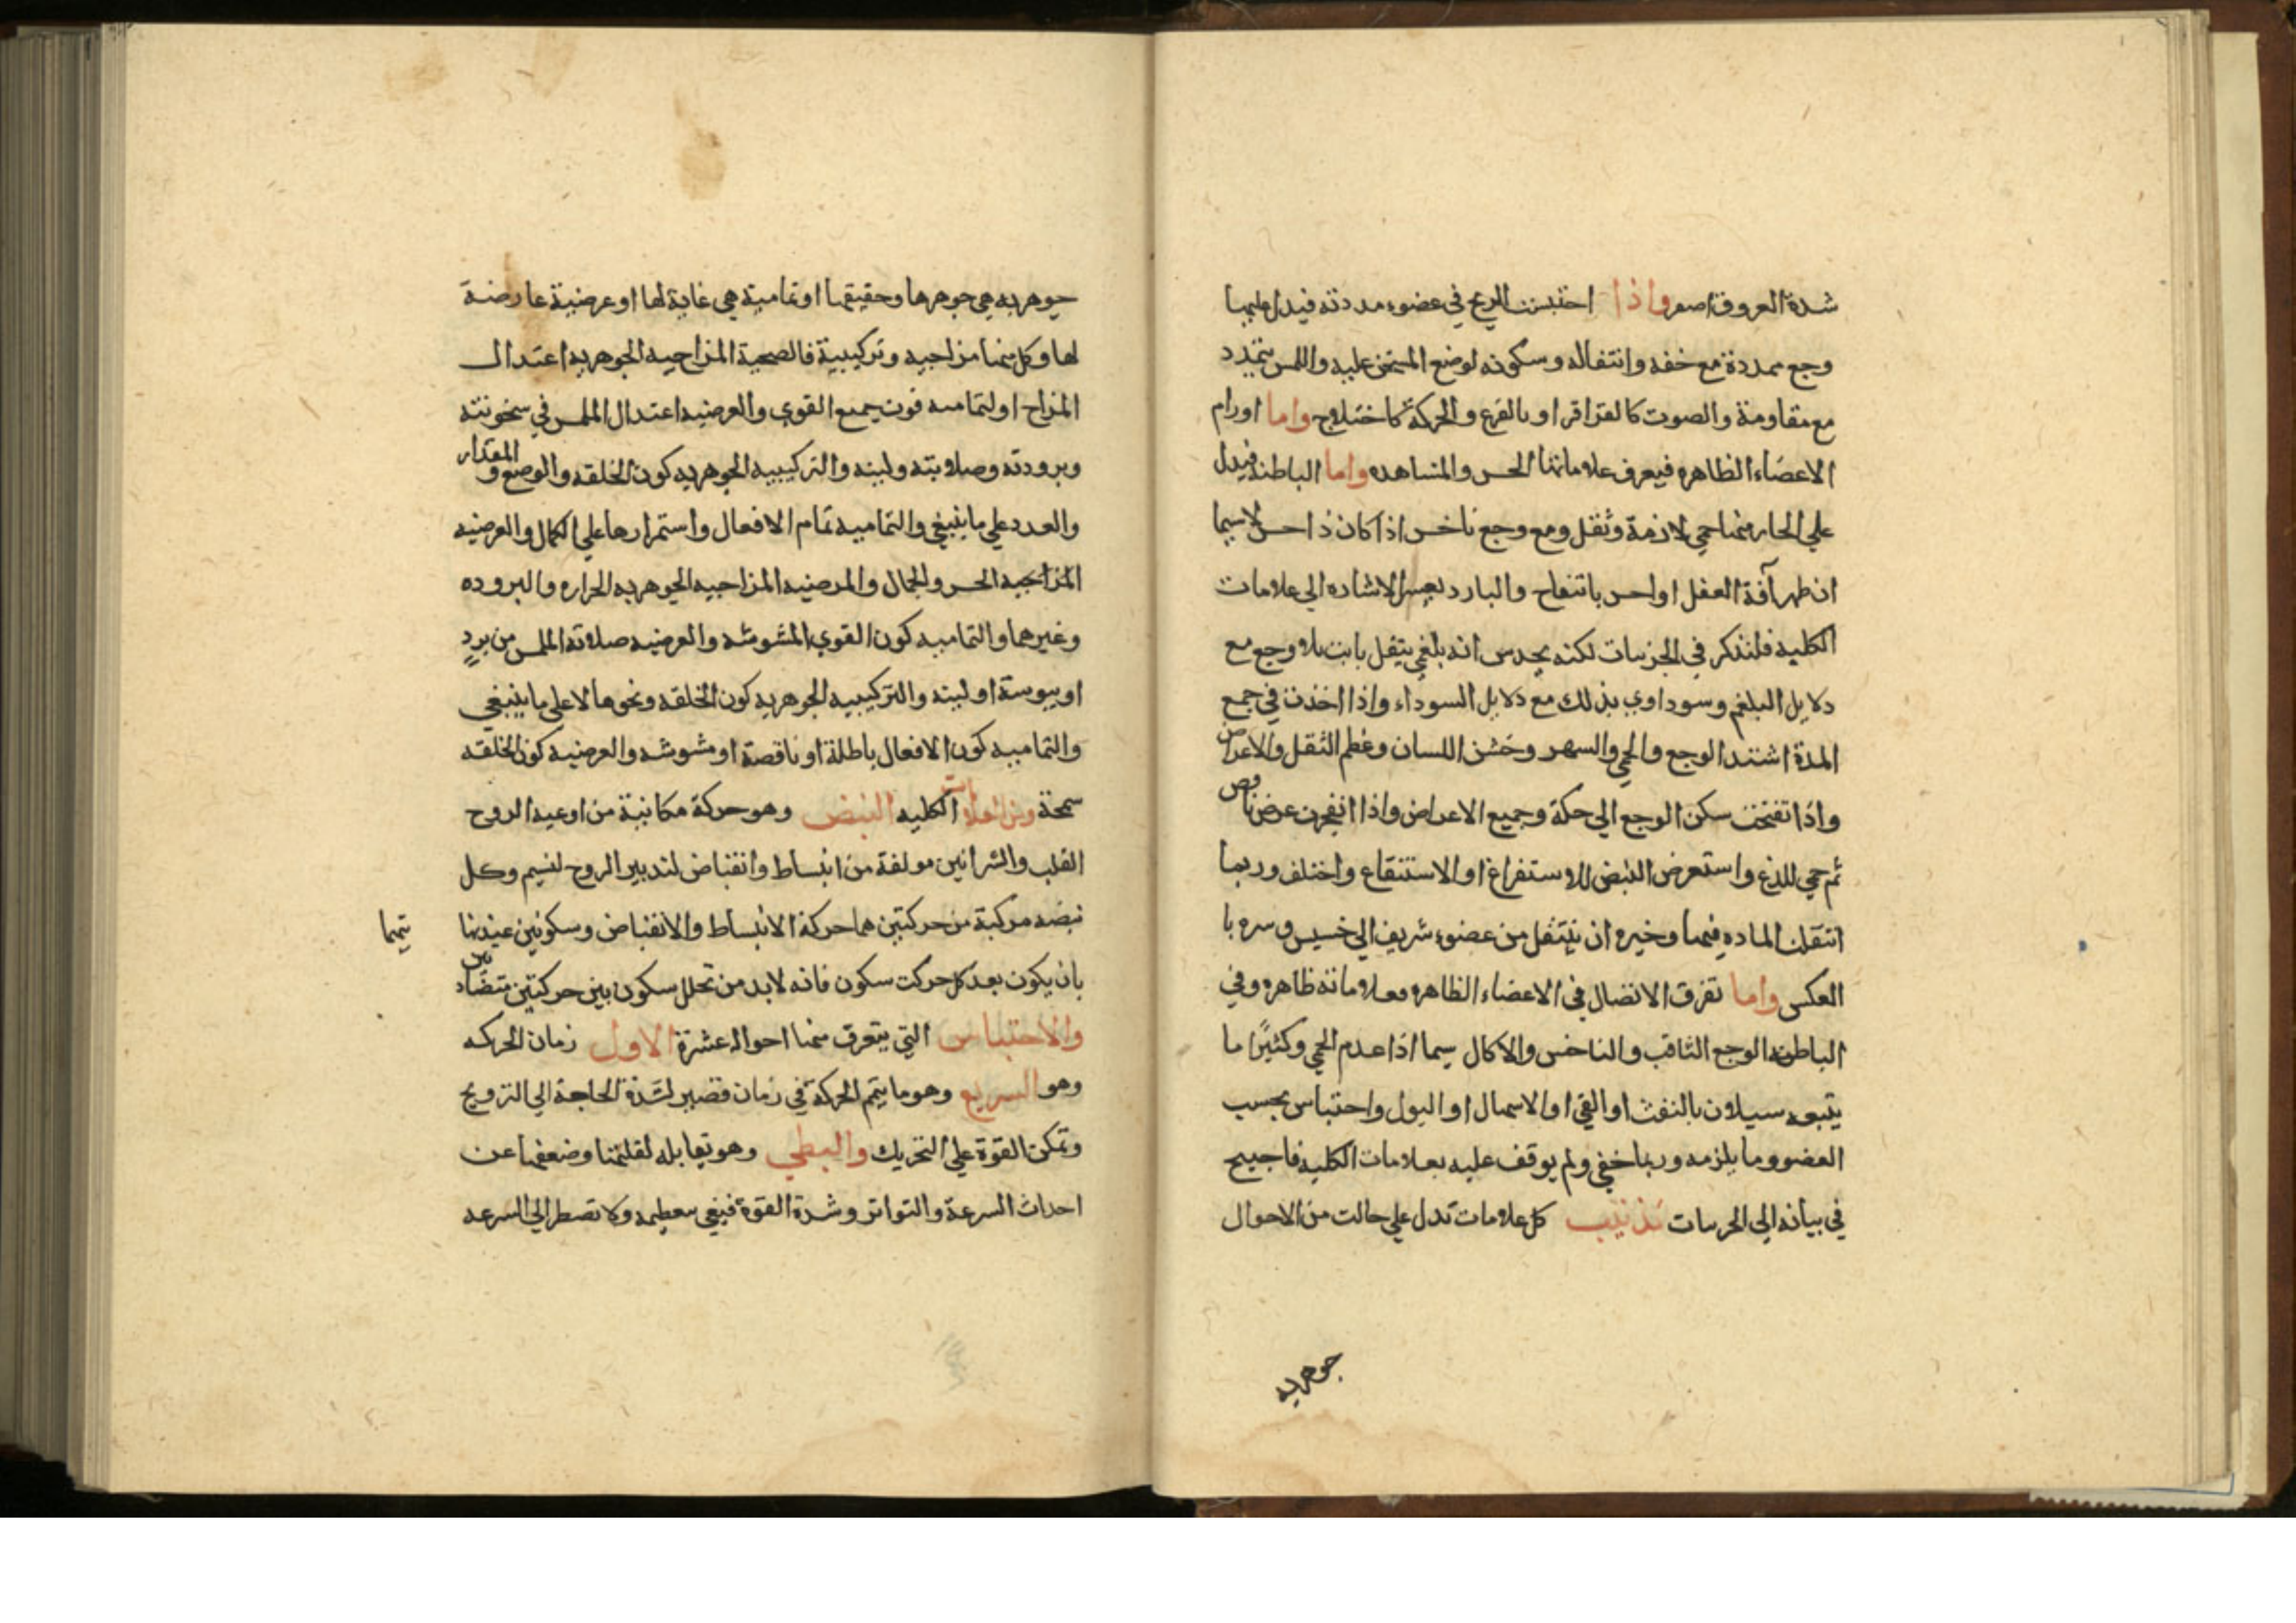 شدة العروق اصفر واذا احتبست الريح في عضو مددته فيدل عليها
وجع ممددة مع خفه وانتفاله وسكونه لوضع المسخن عليه واللمس بتمدد
مع مقاومة والصوت كالقراقر او بالقرع والحركة كاختلاج واما اورام
الاعضاء الظاهره فيعرف علاماتها الحس والمشاهده واما الباطنه فيدل
علي الحار منها حمي لازمة وثقل ومع وجع ناخس اذا كان ذا حس لاسيما
ان ظهر آفة العقل او احس بانتفاخ والبارد يعسر الاشاره الي علامات
الكليه فلنذكر في الجزيبات لكنه يحدس انه بلغمي بثقل بابت بلا وجع مع
دلايل البلغم وسوداوي بذلك مع دلايل السوداء واذا اخذت في جمع
المدة اشتد الوجع والحمي والسهر وخشن اللسان وعظم الثقل والاعراض
واذا تفتحت سكن الوجع الي حكة وجميع الاعراض واذا انفجرت عرض نافض
ثم حمي للذع واستعرض النبض للاستفراغ او الاستنقاع واختلف وربما
انتقلت الماده فيها وخيره ان ينتقل من عضو شريف الي خسيس وسره با
العكس واما تفرق الاتصال في الاعضاء الظاهره فعلاماته ظاهره وفي
الباطنه الوجع الثاقب والناخس والاكال سيما اذا عدم الحمي وكثيرًا ما
يتبعه سيلان بالنفث او القي او الاسهال او البول واحتباس بحسب
العضو وما يلزمه وربما خفي ولم يوقف عليه بعلامات الكليه فاجيح
في بيانه الي الجريبات تذنيب كل علامات تدل علي حالت من الاحوال
جوهريه
جوهريه هي جوهرها وحقيقتها او تمامية هي غاية لها او عرضية عارضة
لها وكل منها مزاجيه وتركيبية فالصحية المزاجيه الجوهريه اعتدال
المزاج او لتماميه قوت جميع القوي والعرضيه اعتدال الملمس في سخونته
وبرودته وصلابته ولينه والتركيبيه الجوهريه كون الخلقه والوضع والمقدار
والعدد علي ما ينبغي والتماميه تمام الافعال واستمرارها علي الكمال والعرضيه
المزاجيه الحس والجمال والمرضيه المزاجيه الجوهريه الحراره والبروده
وغيرهما والتماميه كون القوي المشوشه والعرضيه صلابة الملمس من بردٍ
او يبوسة او لينه والتركيبيه الجوهريه كون الخلقه ونحوها لا علي ما ينبغي
والتماميه كون الافعال باطلة او ناقصة او مشوشه والعرضيه كون الخلقه
سمجة ومن العلامات الكليه النبض وهو حركة مكانية من اوعية الروح
القلب والشرائين مولفة من انبساط وانقباض لتدبير الروح لنسيم وكل
نبضه مركبة من حركتين هما حركة الانبساط والانقباض وسكونين عندنها
يتمها
بان يكون بعد كل حركت سكون فانه لابد من تخلل سكون بين حركتين متضادين
والاحتباس التي يتعرف منها احواله عشرة الاول زمان الحركه
وهو السريع وهو ما يتم الحركة في زمان قصير لشدة الحاجة الي الترويح
وتمكن القوة علي التحريك والبطي وهو يقابله لقلتها وضعفها عن
احداث السرعة والتواتر وشدة القوة فيفي بعظمه ولا تضطر الي السرعه